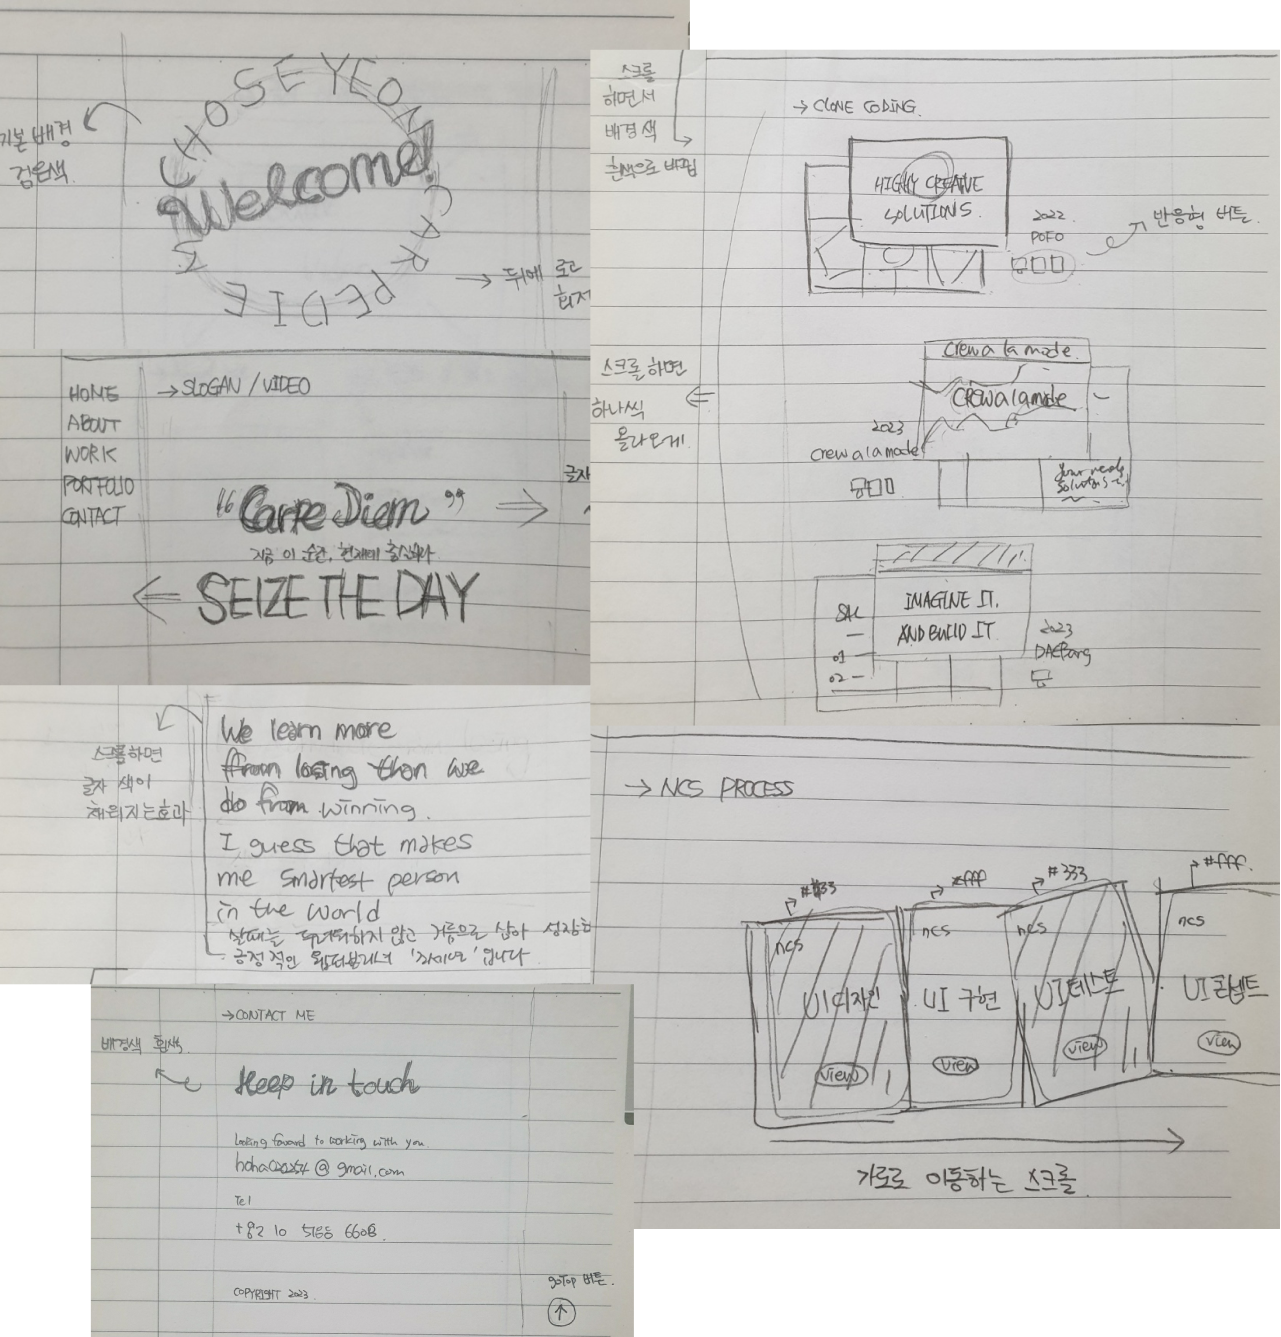 CHOSEYEON CARPEDIEM
Welcome!
기본 배경
검은색
→ 뒤에 로고
회저
HOME
ABOUT
WORK
PORTFOLIO
CONTACT
→ SLOGAN / VIDEO
글자
“Carpe Diem”
지금 이 순간, 현재에 충실하라
SEIZE THE DAY
스크롤하면
글자 색이
채워지는 효과
We learn more
from losing than we
do from winning.
I guess that makes
me smartest person
in the world
실패는 두려워하지 않고 거름으로 삼아 성장하
긍정적인 웹퍼블리셔 입니다
→ CONTACT ME
배경색 흰색
Keep in touch
Looking forward to working with you
@gmail.com
Tel
+82 10 6608
COPYRIGHT 2023
goTop 버튼.
↑
스크롤
하면서
배경색
흰색으로 바뀜
→ CLONE CODING.
HIGHLY CREATIVE
SOLUTIONS.
2022.
POFO
반응형 버튼.
스크롤하면
하나씩
올라오게
crewalamode.
CREWalamode
2023
crewalamode
your needs
solutions
SAC
01
02
IMAGINE IT.
AND BUILD IT
2023
DAEBang
→ NCS PROCESS
#333
#fff
#333
#fff.
ncs
ncs
ncs
ncs
UI디자인
UI 구현
UI테스트
UI콘셉트
view
view
view
view
가로로 이동하는 스크롤